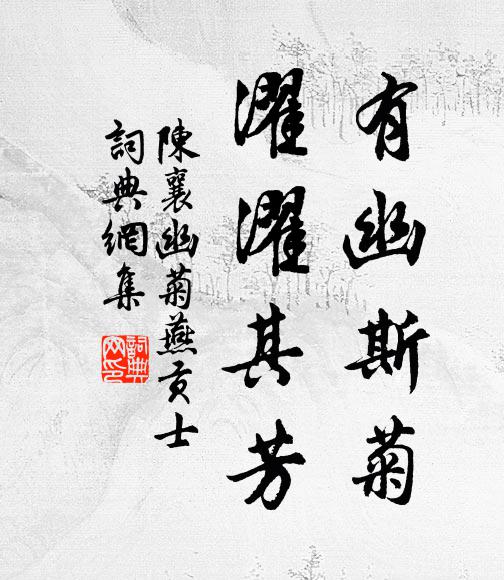 有幽斯菊
濯濯其芳
陳襄幽菊燕貢士
詞典網集
詞典
网印